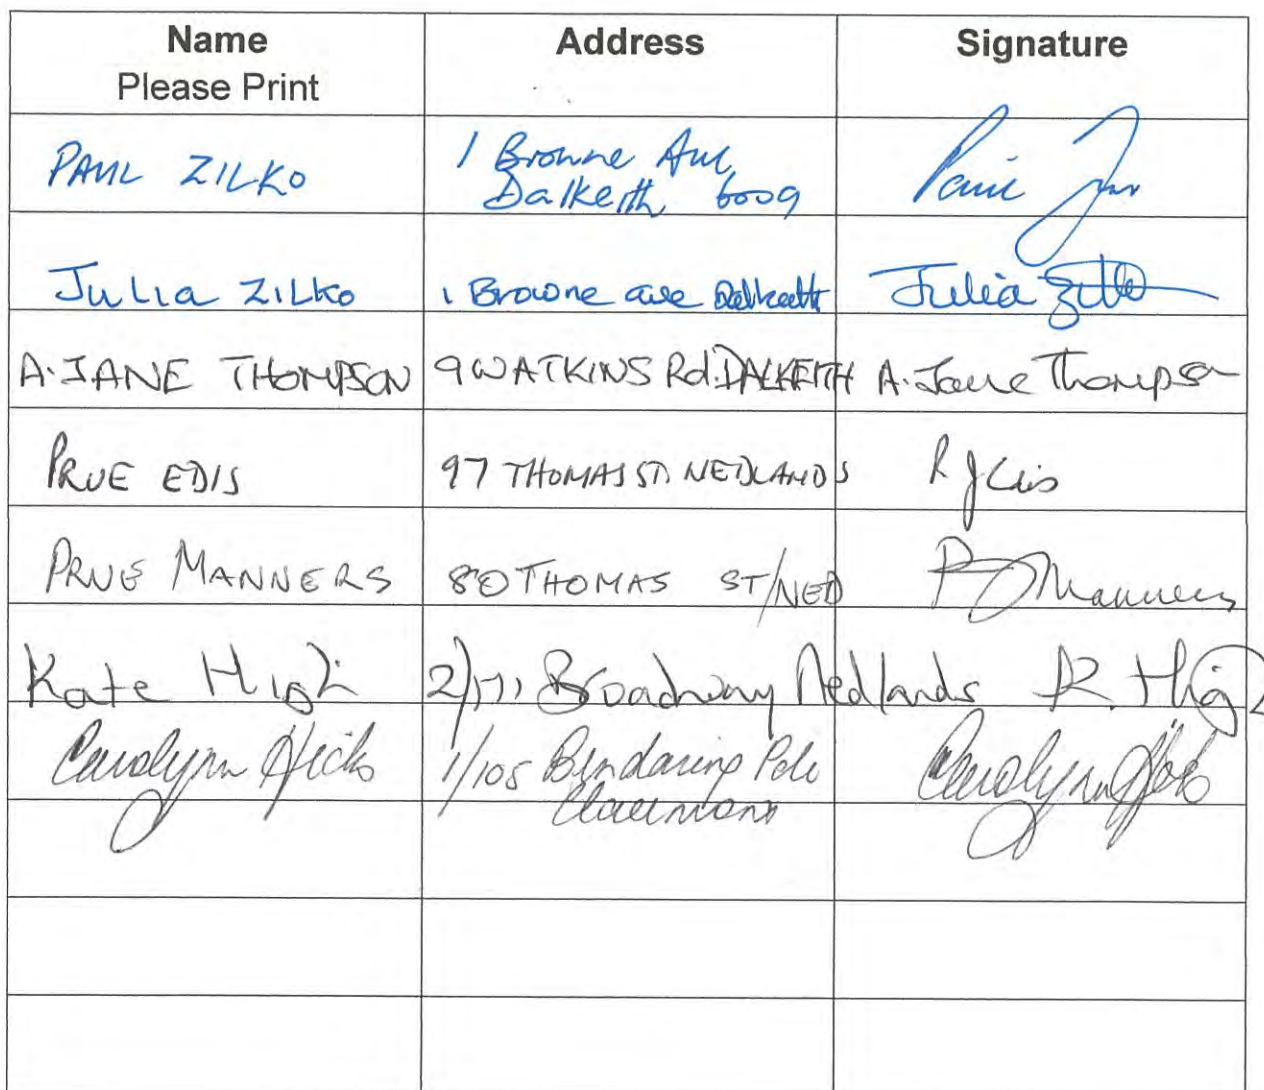 Name Address Signature
Please Print
PAUL ZILKO 1 Browne Ave Paul
Dalkeith 6009
Julia ZILKO 1 Browne ave Dalkeith Julia Zilko
A. JANE THOMPSON 9 WATKINS Rd. DALKEITH A. Jane Thompson
PRUE EDIS 97 THOMAS ST. NEDLANDS
PRUE MANNERS 80 THOMAS ST/NED P Manners
Kate High 2/171 Broadway Nedlands K. High
Carolynn Hicks 1/105 Bindaring Pde Carolynn Hicks
Claremont